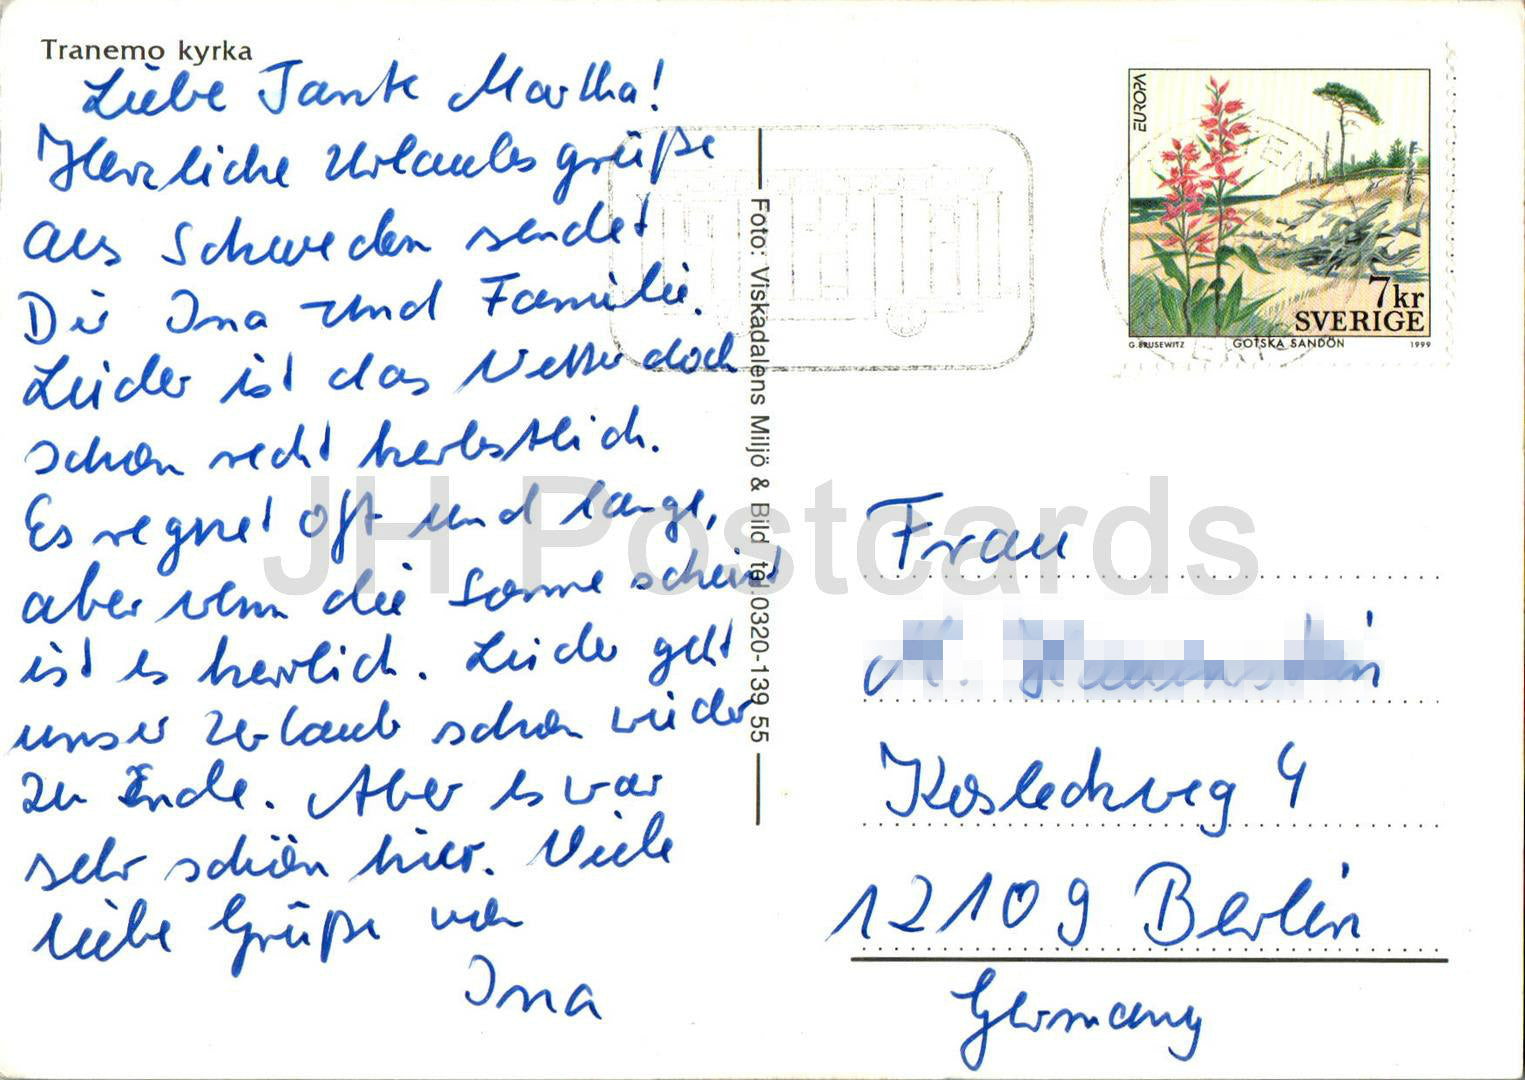 Tranemo kyrka
Liebe Tante Martha!
Herzliche Urlaubsgrüße
aus Schweden sendet
Dir Ina und Familie.
Leider ist das Wetter doch
schon recht herbstlich.
Es regnet oft und lange,
aber wenn die Sonne scheint
ist es herrlich. Leider geht
unser Urlaub schon wieder
zu Ende. Aber es war
sehr schön hier. Viele
liebe Grüße von
Ina
Foto: Viskadalens Miljö & Bild tel. 0320-139 55
EUROPA
7kr
SVERIGE
G.BRUSEWITZ GOTSKA SANDÖN 1999
JH Postcards
Frau
Kosleckweg 4
12109 Berlin
Germany